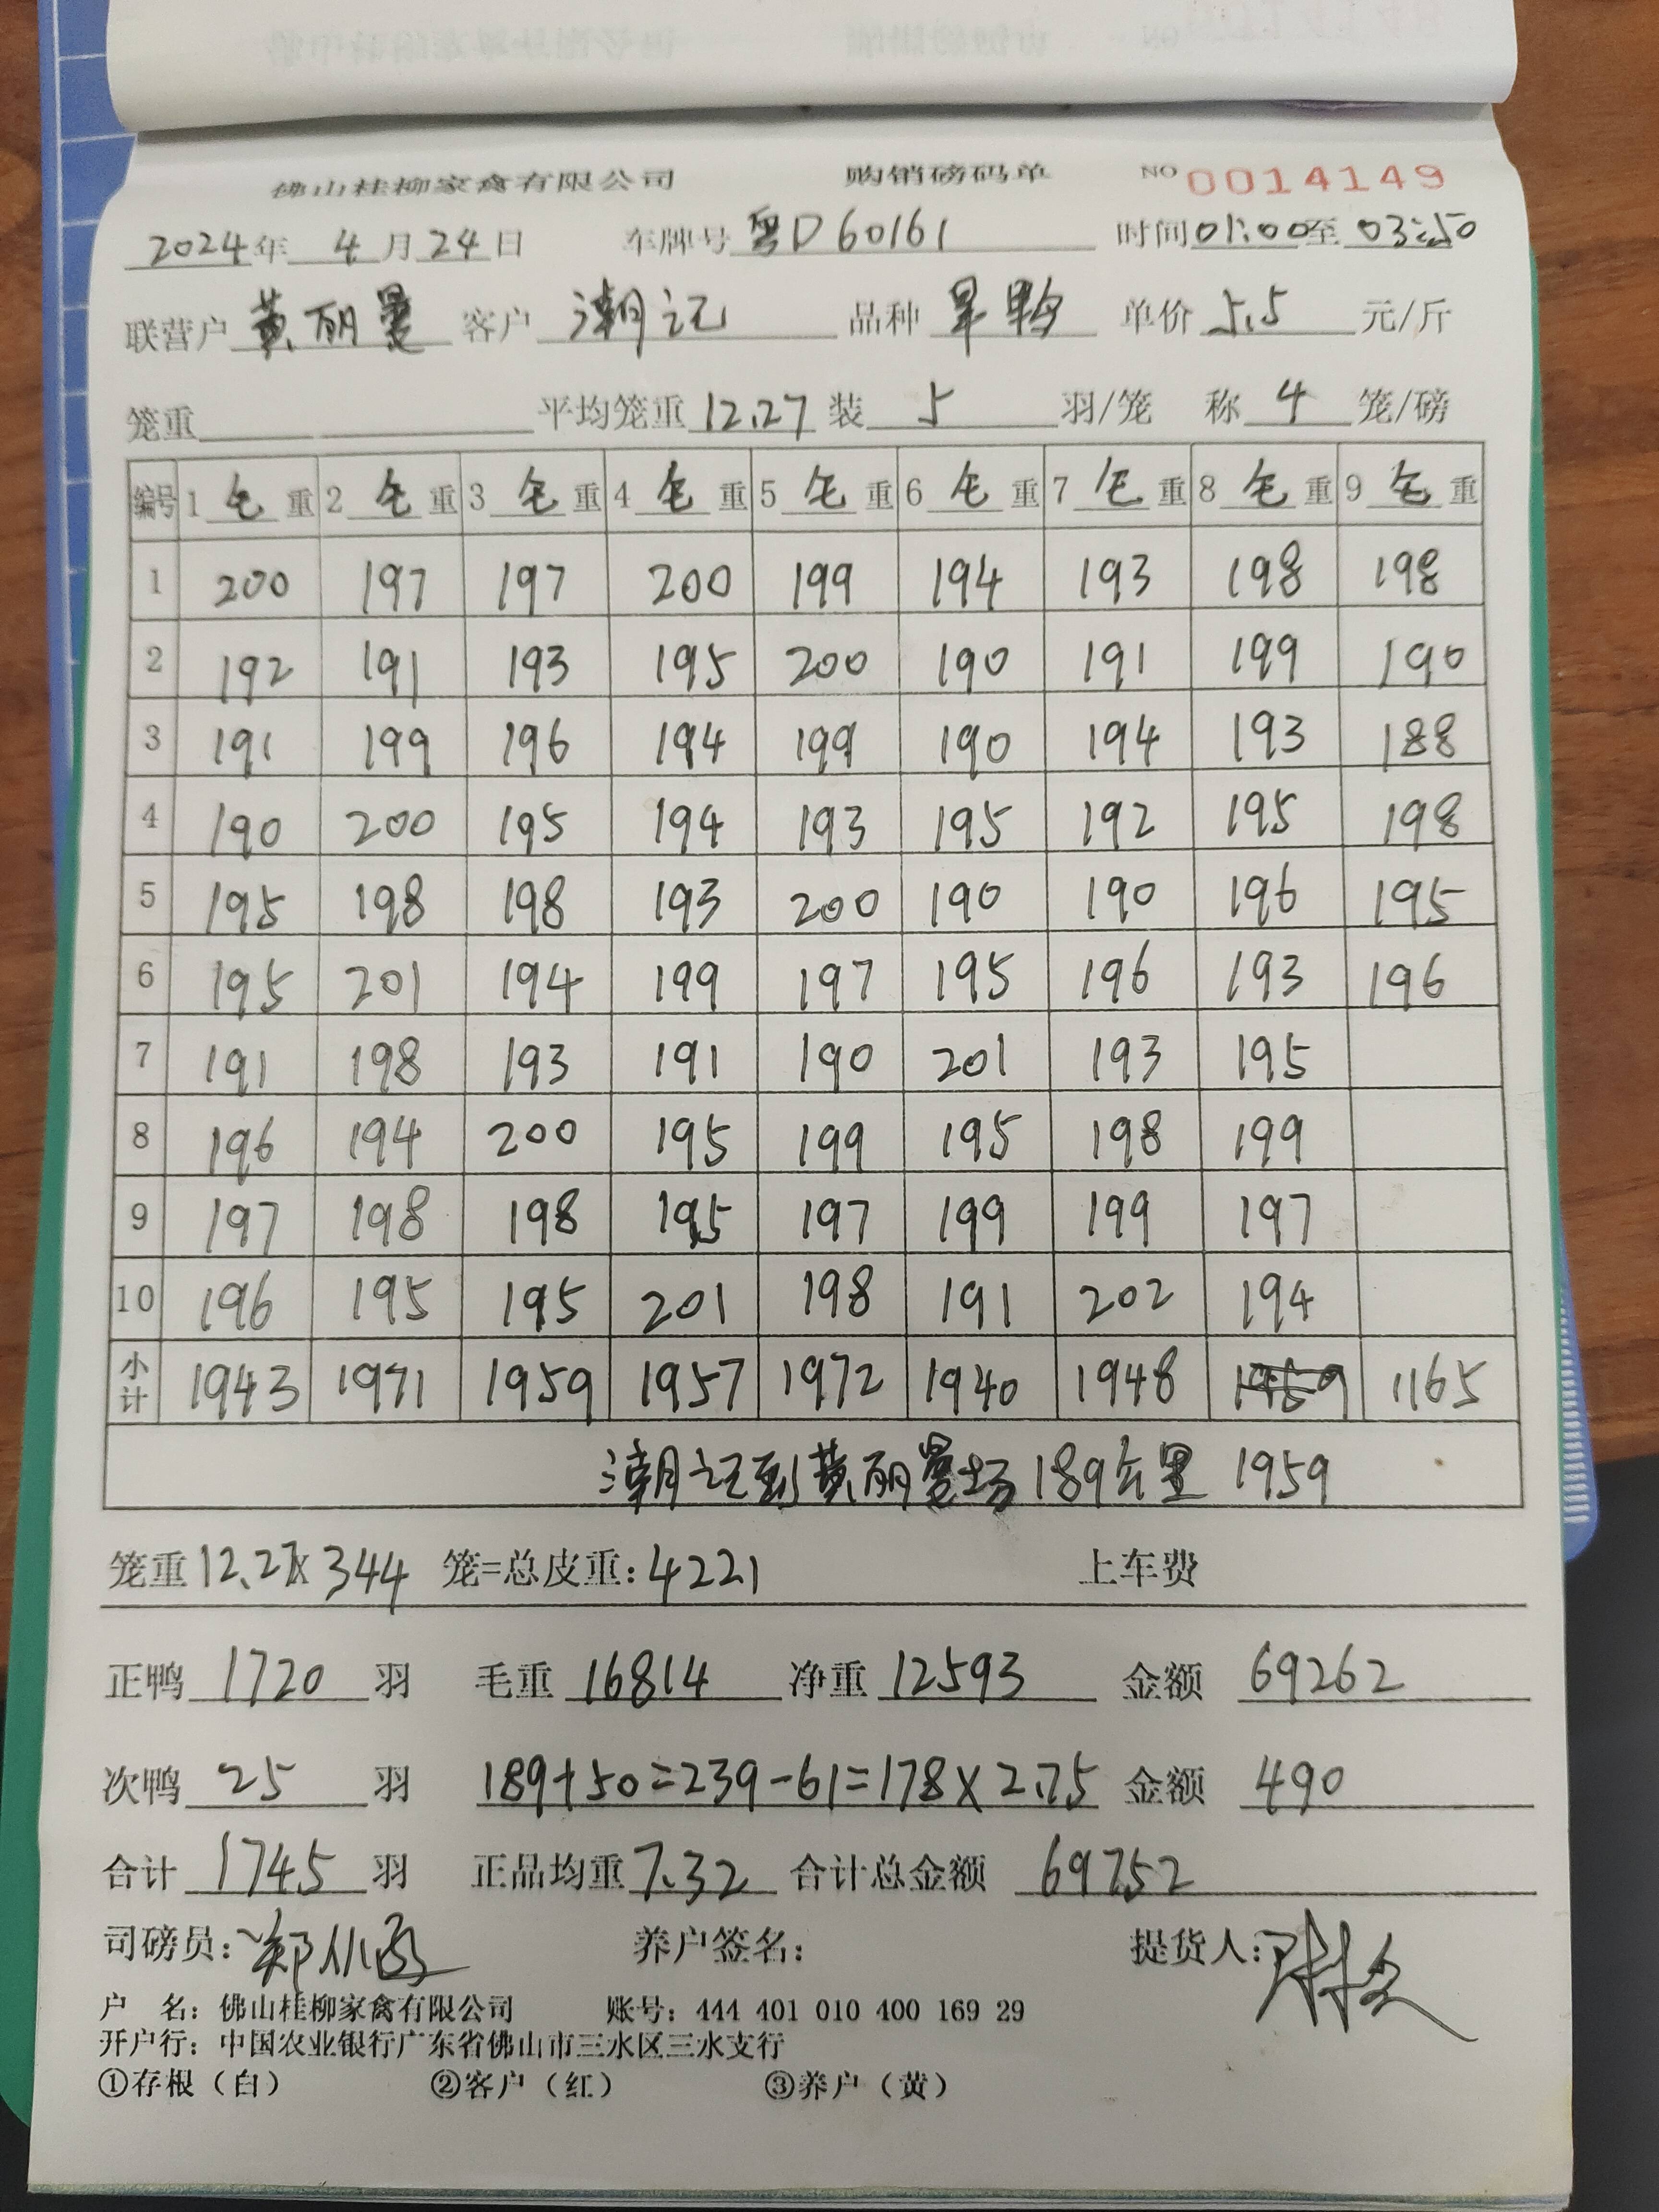 佛山桂柳家禽有限公司 购销磅码单 NO 0014149
2024年 4月24日 车牌号 粤D60161 时间01:00至03:50
联营户 黄丽曼 客户 潮记 品种 旱鸭 单价 5.5 元/斤
笼重 平均笼重 12.27 装 5 羽/笼 称 4 笼/磅
编号 1 毛 重 2 毛 重 3 毛 重 4 毛 重 5 毛 重 6 毛 重 7 毛 重 8 毛 重 9 毛 重
1 200 197 197 200 199 194 193 198 198
2 192 191 193 195 200 190 191 199 190
3 191 199 196 194 199 190 194 193 188
4 190 200 195 194 193 195 192 195 198
5 195 198 198 193 200 190 190 196 195
6 195 201 194 199 197 195 196 193 196
7 191 198 193 191 190 201 193 195
8 196 194 200 195 199 195 198 199
9 197 198 198 195 197 199 199 197
10 196 195 195 201 198 191 202 194
小计 1943 1971 1959 1957 1972 1940 1948 1165
潮记到黄丽曼场189公里 1959
笼重 12.27X 344 笼=总皮重: 4221 上车费
正鸭 1720 羽 毛重 16814 净重 12593 金额 69262
次鸭 25 羽 189+50=239-61=178X2.75 金额 490
合计 1745 羽 正品均重 7.32 合计总金额 69752
司磅员: 养户签名: 提货人:
户 名: 佛山桂柳家禽有限公司 账号: 444 401 010 400 169 29
开户行: 中国农业银行广东省佛山市三水区三水支行
①存根（白） ②客户（红） ③养户（黄）